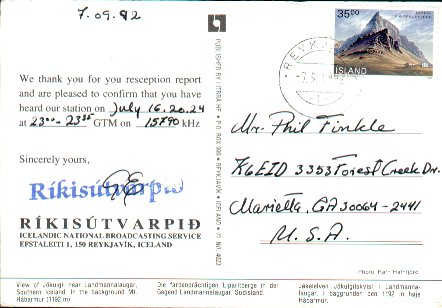 7.09.92
We thank you for you resception report
and are pleased to confirm that you have
heard our station on July 16.20.24
at 23⁰⁰-23³⁵ GTM on 15790 kHz
Sincerely yours,
Ríkisútvarpið
RÍKISÚTVARPIÐ
ICELANDIC NATIONAL BROADCASTING SERVICE
EFSTALEITI 1, 150 REYKJAVÍK, ICELAND
View of Jökulgil near Landmannalaugar,
Southern Iceland. In the background Mt.
Hábarmur (1192 m)
PUBLISHED BY LITBRÁ HF. P.O. BOX 999 REYKJAVÍK ICELAND
35⁰⁰
ÍSLAND
REYKJA
Mr. Phil Tinkle
K6EID 3353 Forest Creek Dr.
Marietta, GA 30064-2441
U.S.A.
Die farbenprächtigen Liparitberge in der
Gegend Landmannalaugar, Südisland.
Jøkelelven Jökulgilskvísl i Landmanna-
laugar, i baggrunden den 1192 m høje
Hábarmur.